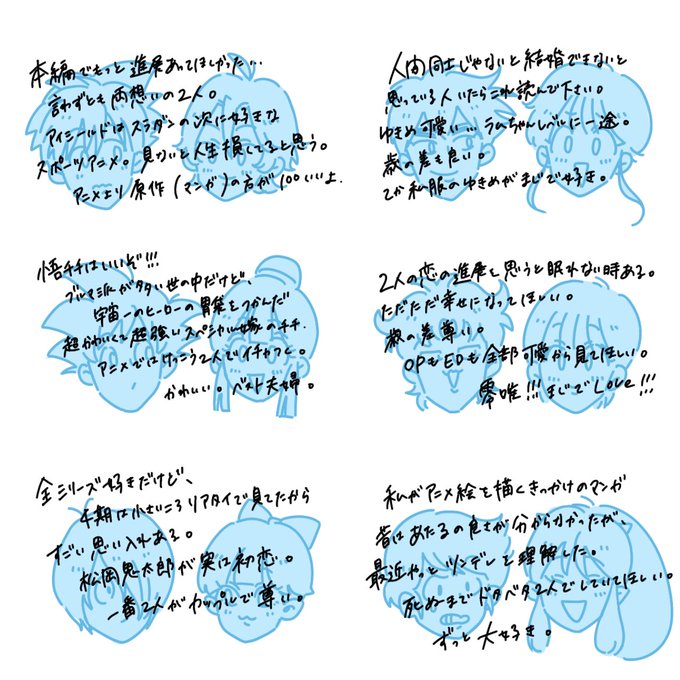 本編でもっと進展あってほしかった…
言わずとも両想いの2人。
アイシールドはスラダンの次に好きな
スポーツアニメ。見ないと人生損してると思う。
アニメより原作(マンガ)の方が100いいよ.
人間同士じゃないと結婚できないと
思っている人いたらこれ読んで下さい。
ゆきめ可愛い…ラムちゃんレベルに一途。
歳の差も良い。
てか私服のゆきめがまじで好き。
悟チチはいいぞ!!!
ブルマ派が多い世の中だけど、
宇宙一のヒーローの胃袋をつかんだ
超かわいくて超強いスペシャル嫁のチチ.
アニメではけっこう2人でイチャつく。
かわいい。ベスト夫婦。
2人の恋の進展を思うと眠れない時ある。
ただただ幸せになってほしい。
歳の差尊い。
OPもEDも全部可愛から見てほしい。
零唯!!!まじでLove!!!
全シリーズ好きだけど、
4期は小さいころリアタイで見てたから
すごい思い入れある。
松岡鬼太郎が実は初恋。
一番2人がカップルで尊い。
私がアニメ絵を描くきっかけのマンガ
昔はあたるの良さが分からなかったが、
最近やっとツンデレで理解した。
死ぬまでドタバタ2人でしていてほしい。
ずっと大好き。